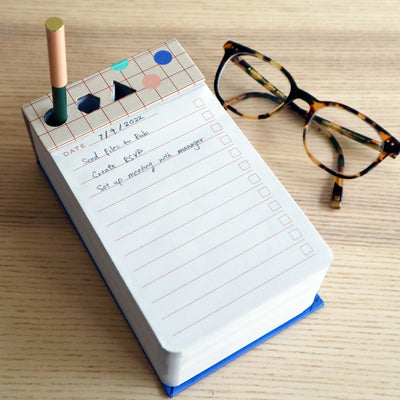 DATE 7/9/2022
Send Files to Rob
Create RSVP
Set up meeting with manager